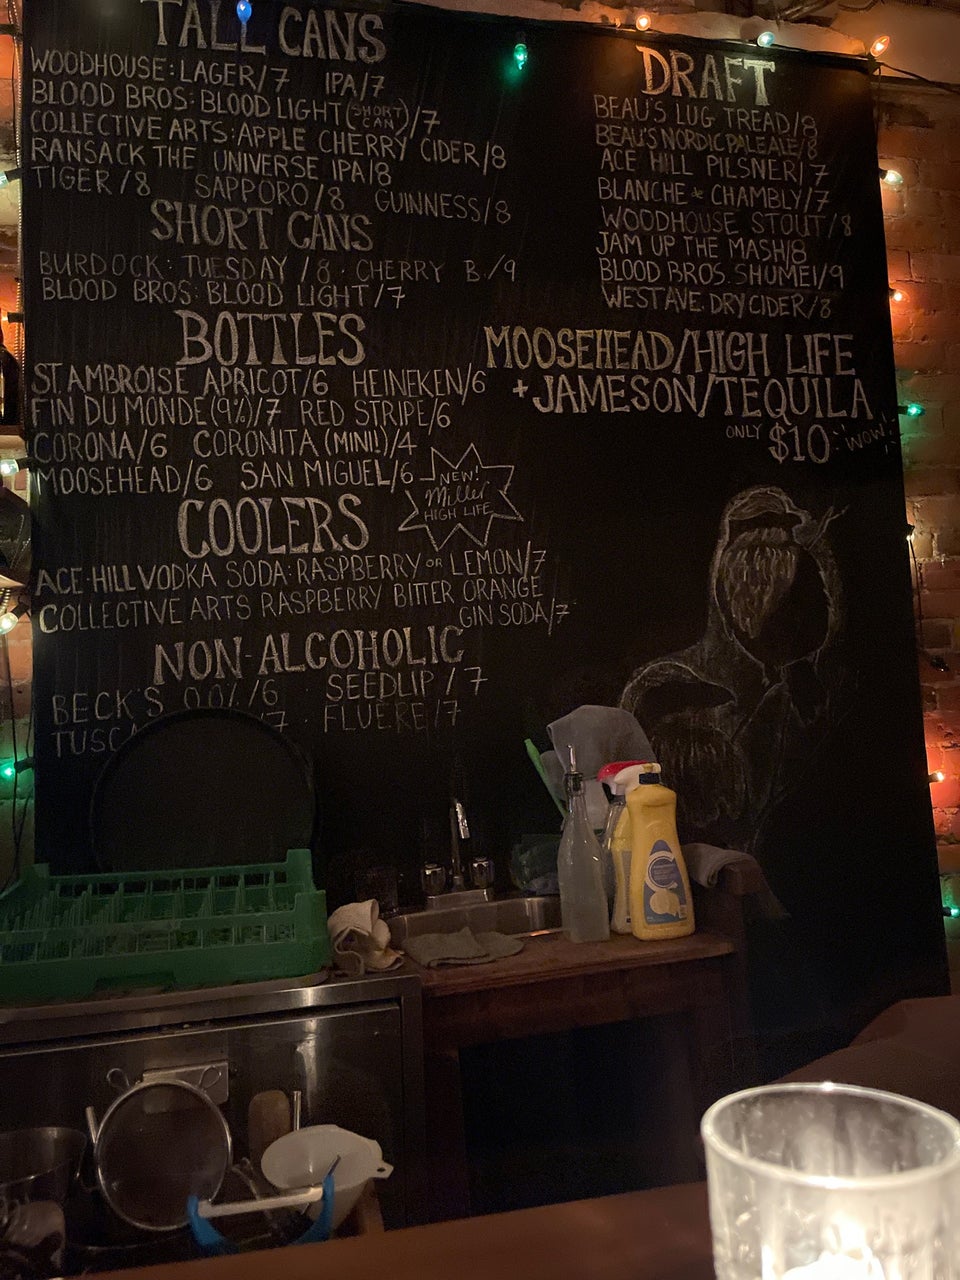 TALL CANS
WOODHOUSE: LAGER/7 IPA/7
BLOOD BROS: BLOOD LIGHT (SHORT CAN)/7
COLLECTIVE ARTS: APPLE CHERRY CIDER/8
RANSACK THE UNIVERSE IPA/8
TIGER/8 SAPPORO/8 GUINNESS/8
SHORT CANS
BURDOCK: TUESDAY /8 · CHERRY B./9
BLOOD BROS: BLOOD LIGHT/7
BOTTLES
ST. AMBROISE APRICOT/6 HEINEKEN/6
FIN DU MONDE (9%)/7 RED STRIPE/6
CORONA/6 CORONITA (MINI!)/4
MOOSEHEAD/6 SAN MIGUEL/6
NEW!
Miller
HIGH LIFE
COOLERS
ACE·HILL VODKA SODA: RASPBERRY OR LEMON/7
COLLECTIVE ARTS RASPBERRY BITTER ORANGE
GIN SODA/7
NON-ALCOHOLIC
BECK'S 0.0%/6 SEEDLIP/7
TUSCA 7 · FLUERE/7
DRAFT
BEAU'S LUG TREAD/8
BEAU'S NORDIC PALE ALE/8
ACE HILL PILSNER/7
BLANCHE * CHAMBLY/7
WOODHOUSE STOUT/8
JAM UP THE MASH/8
BLOOD BROS. SHUMEI/9
WEST AVE. DRY CIDER/8
MOOSEHEAD/HIGH LIFE
+ JAMESON/TEQUILA
ONLY $10 WOW!